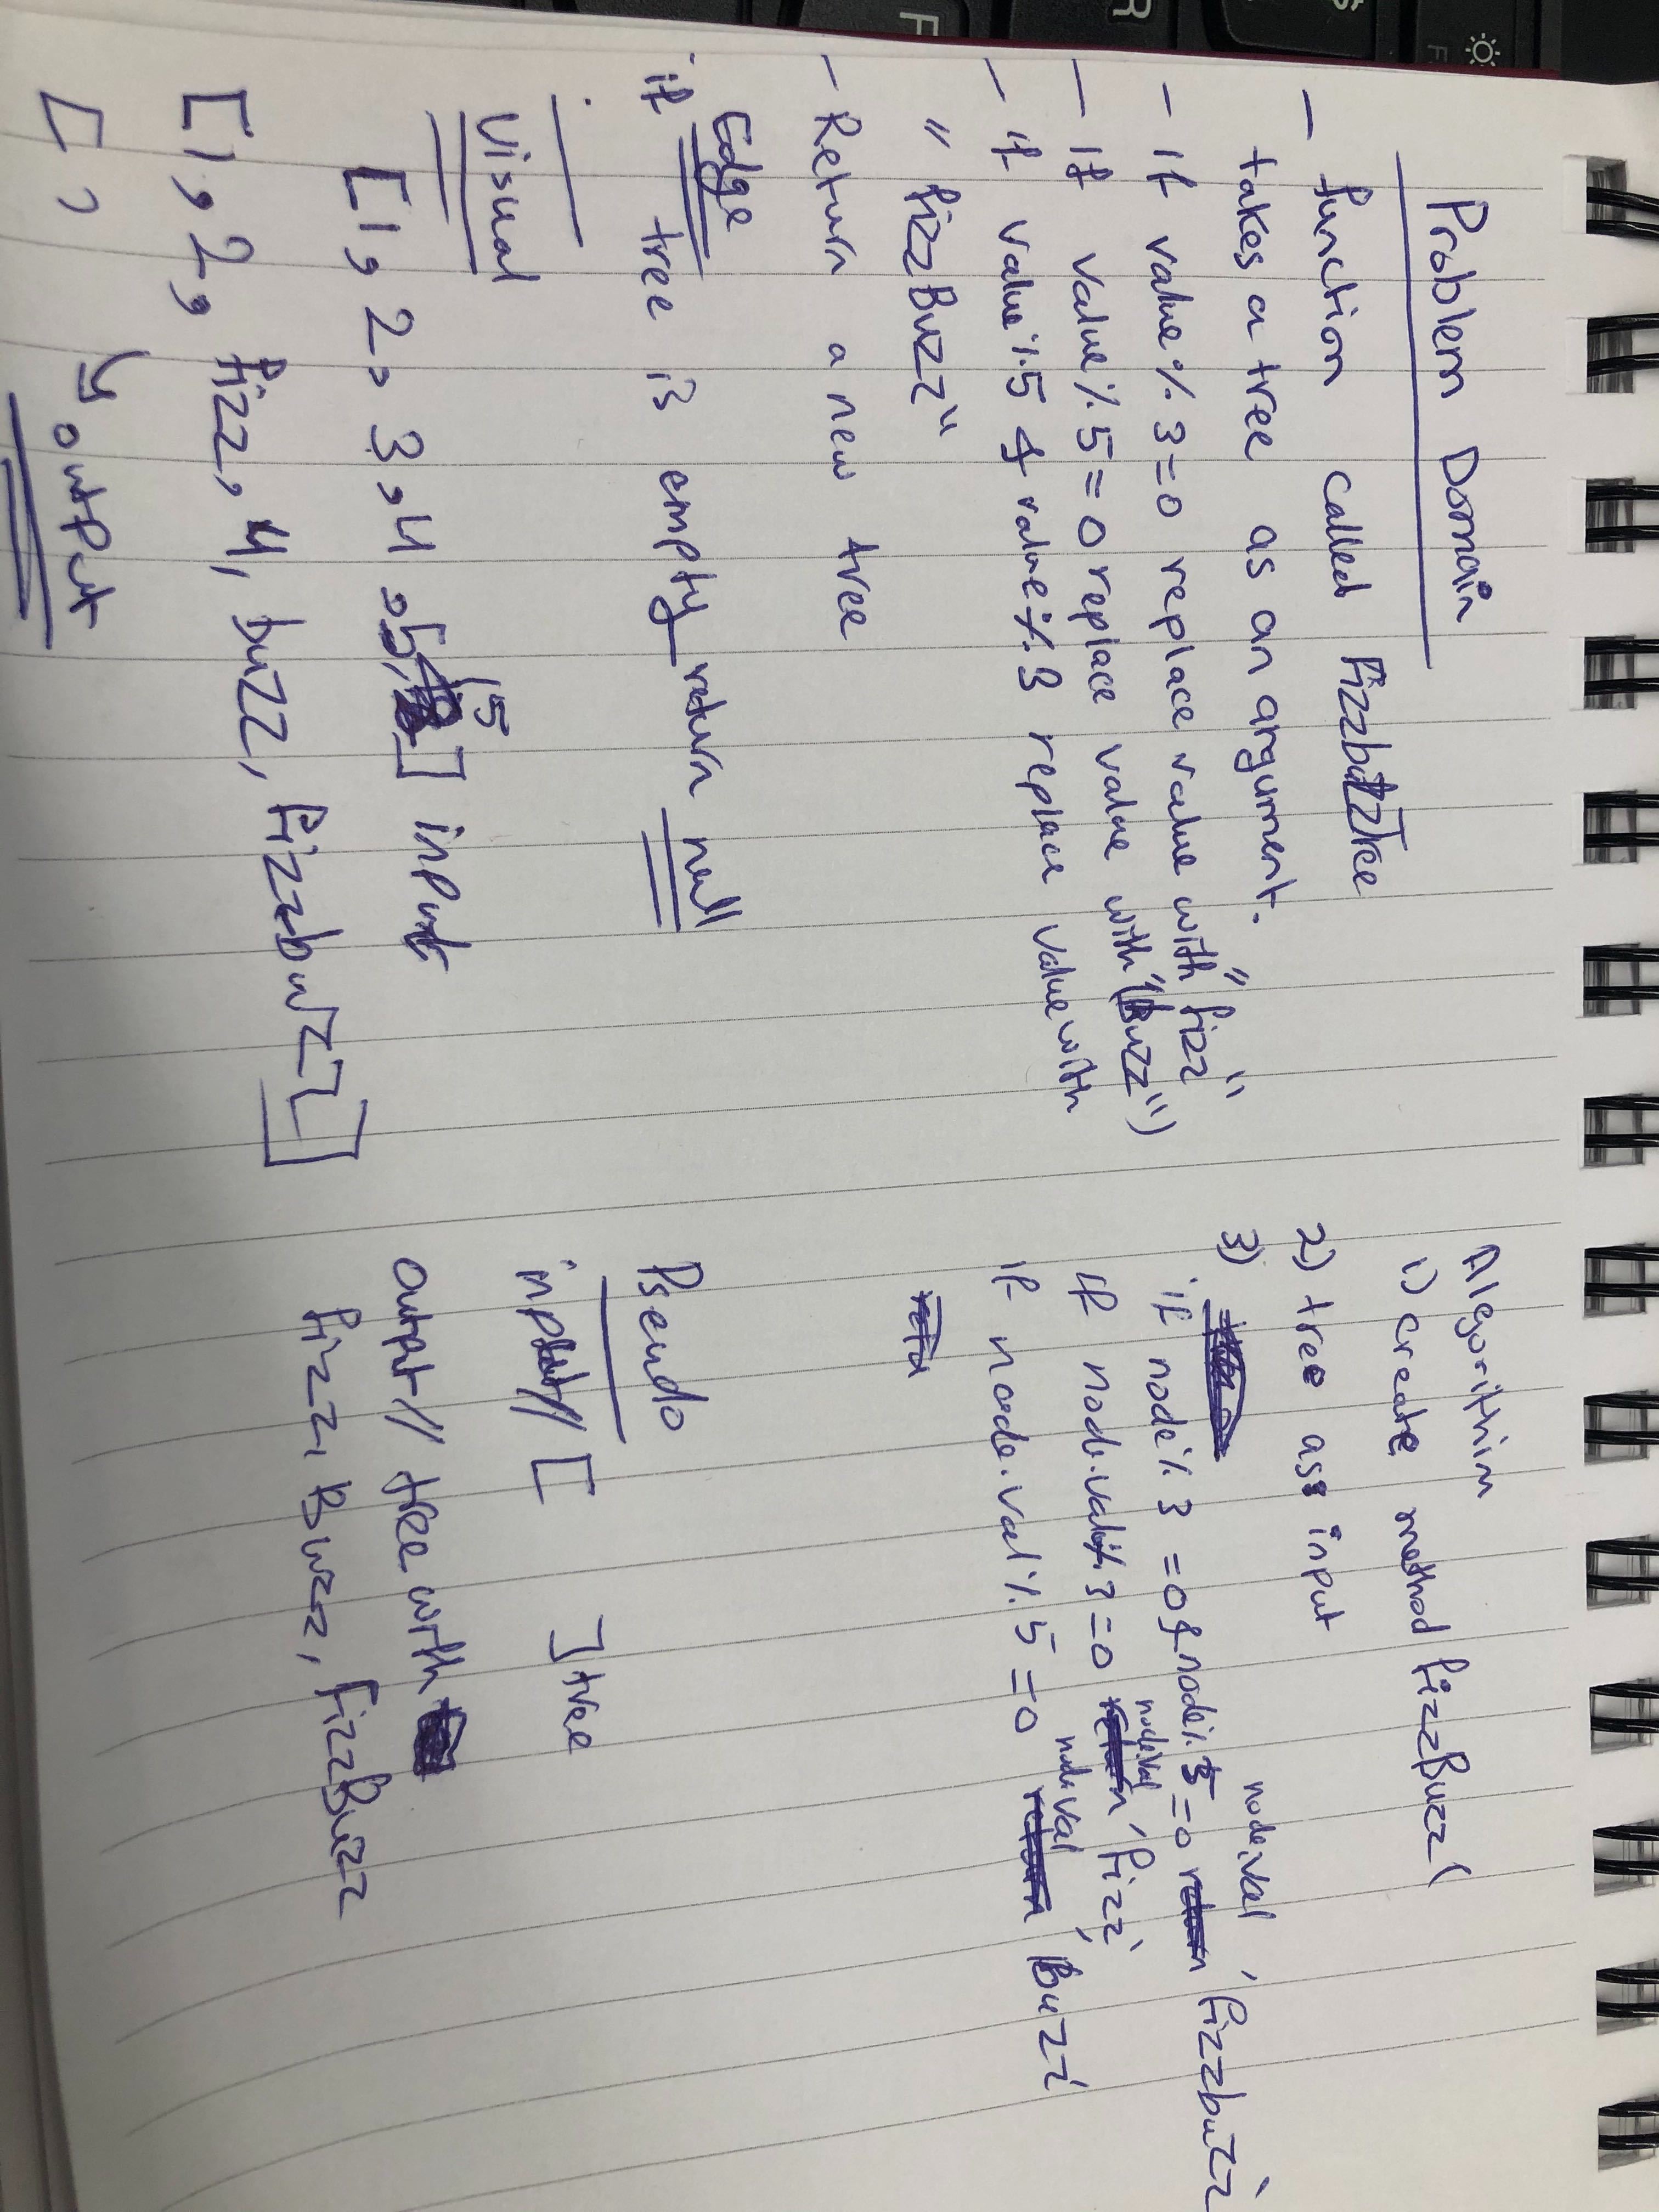 Problem Domain
- function called FizzbuzzTree
takes a tree as an argument.
- if value % 3 = 0 replace value with "fizz"
- if value % 5 = 0 replace value with "(Buzz")
- if value % 5 & value % 3 replace value with
"fizzBuzz"
- Return a new tree
Edge
if tree is empty return null
Visual
[1, 2, 3, 4, 5, 15] input
[1, 2, fizz, 4, buzz, fizzbuzz]
[,
↳ output
Alegorithim
1) create method fizzBuzz(
2) tree ass input
3)
node.val
if node % 3 = 0 & node % 5 = 0 return 'fizzbuzz'
node.val
if node.val % 3 = 0 return 'fizz'
node.val
if node.val % 5 = 0 return 'Buzz'
Pseudo
input// [ ] tree
output// tree with
fizz, Buzz, FizzBuzz
$
R
F
F